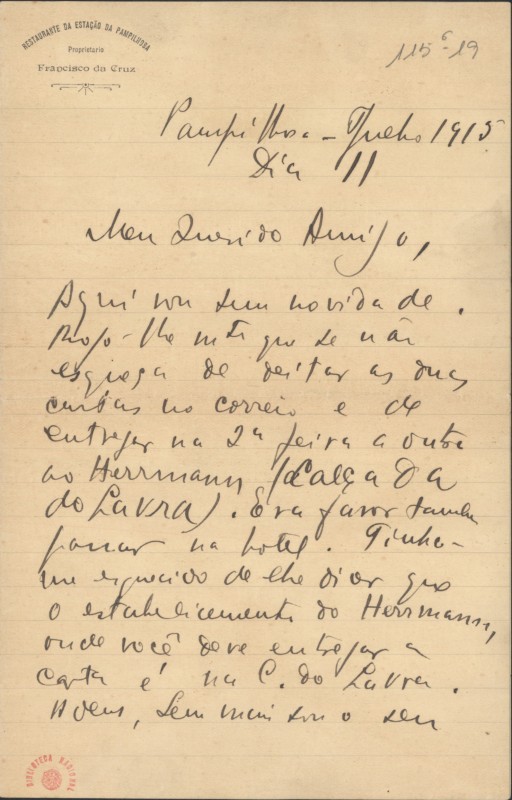 RESTAURANTE DA ESTAÇÃO DA PAMPILHOSA
Proprietario
Francisco da Cruz
115 6-19
Pampilhosa - Julho 1915
Dia 11
Meu Querido Amigo,
Aqui vou sem novidade.
Rogo-lhe mto que se não
esqueça de deitar as duas
cartas no correio e de
entregar na 2ª feira a outra
ao Herrmann (Calçada
do Lavra). Era favor tambem
passar na hotel. Tinha-
me esquecido de lhe dizer que
o estabelecimento do Herrmann,
onde você deve entregar a
carta é na C. do Lavra.
Adeus, sem mais sou o seu
BIBLIOTECA NACIONAL